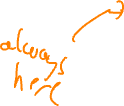 always
here